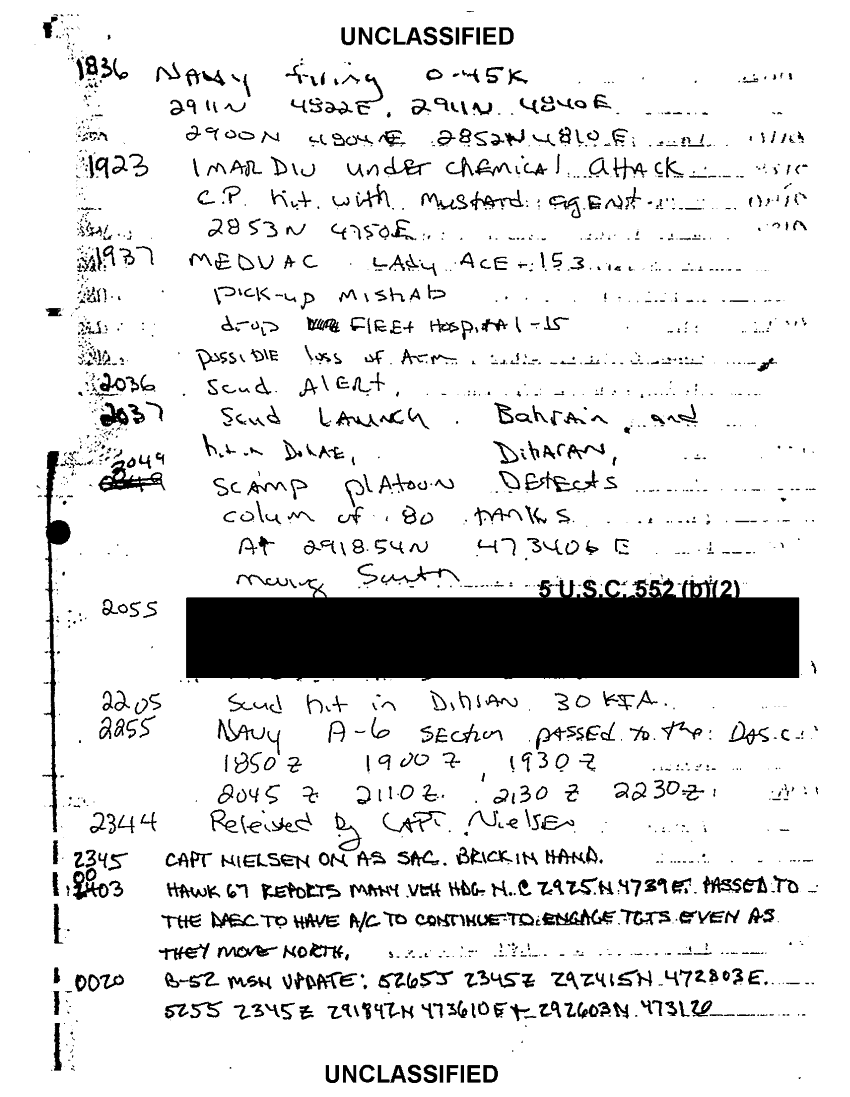 UNCLASSIFIED
1836 NAVY firing 0-45K
2911N 4822E, 2911N 4840E
2900N 4804E 2852N 4810E
1923 1MARDIV under chemical attack
C.P. hit with mustard agent
2853N 4750E
1937 MEDVAC LADY ACE-153
pick-up MISHAB
drop FlEEt HospitAl-15
possiblE loss of Arm
2036 Scud AlERt,
2037 Scud LAUNCH Bahrain and
hit in Dihrahan,
2049 SCAMP plAtoon DEtEcts
colum of 80 tANKS
At 2918.54N 473406E
moving South
5 U.S.C. 552 (b)(2)
2055
2205 Scud hit in 30 KIA
2255 NAVY A-6 SECtion pASSED to the DASC
1850 Z 1900 Z, 1930 Z
2045 Z 2110 Z 2130 Z 2230 Z
2344 Releived by CAPT. NielSEN
2345 CAPT NIELSEN ON AS SAC. BRICK IN HAND.
0003 HAWK 67 REPORTS MANY VEH HDG N. @ 2925N 4739E. PASSED TO
THE DASC TO HAVE A/C TO CONTINUE TO ENGAGE TGTS EVEN AS
THEY MOVE NORTH.
0020 B-52 MSN UPDATE: 5265J 2345Z 292415N 472803E.
5255 2345Z 291842N 473610E + 292603N 473120
UNCLASSIFIED